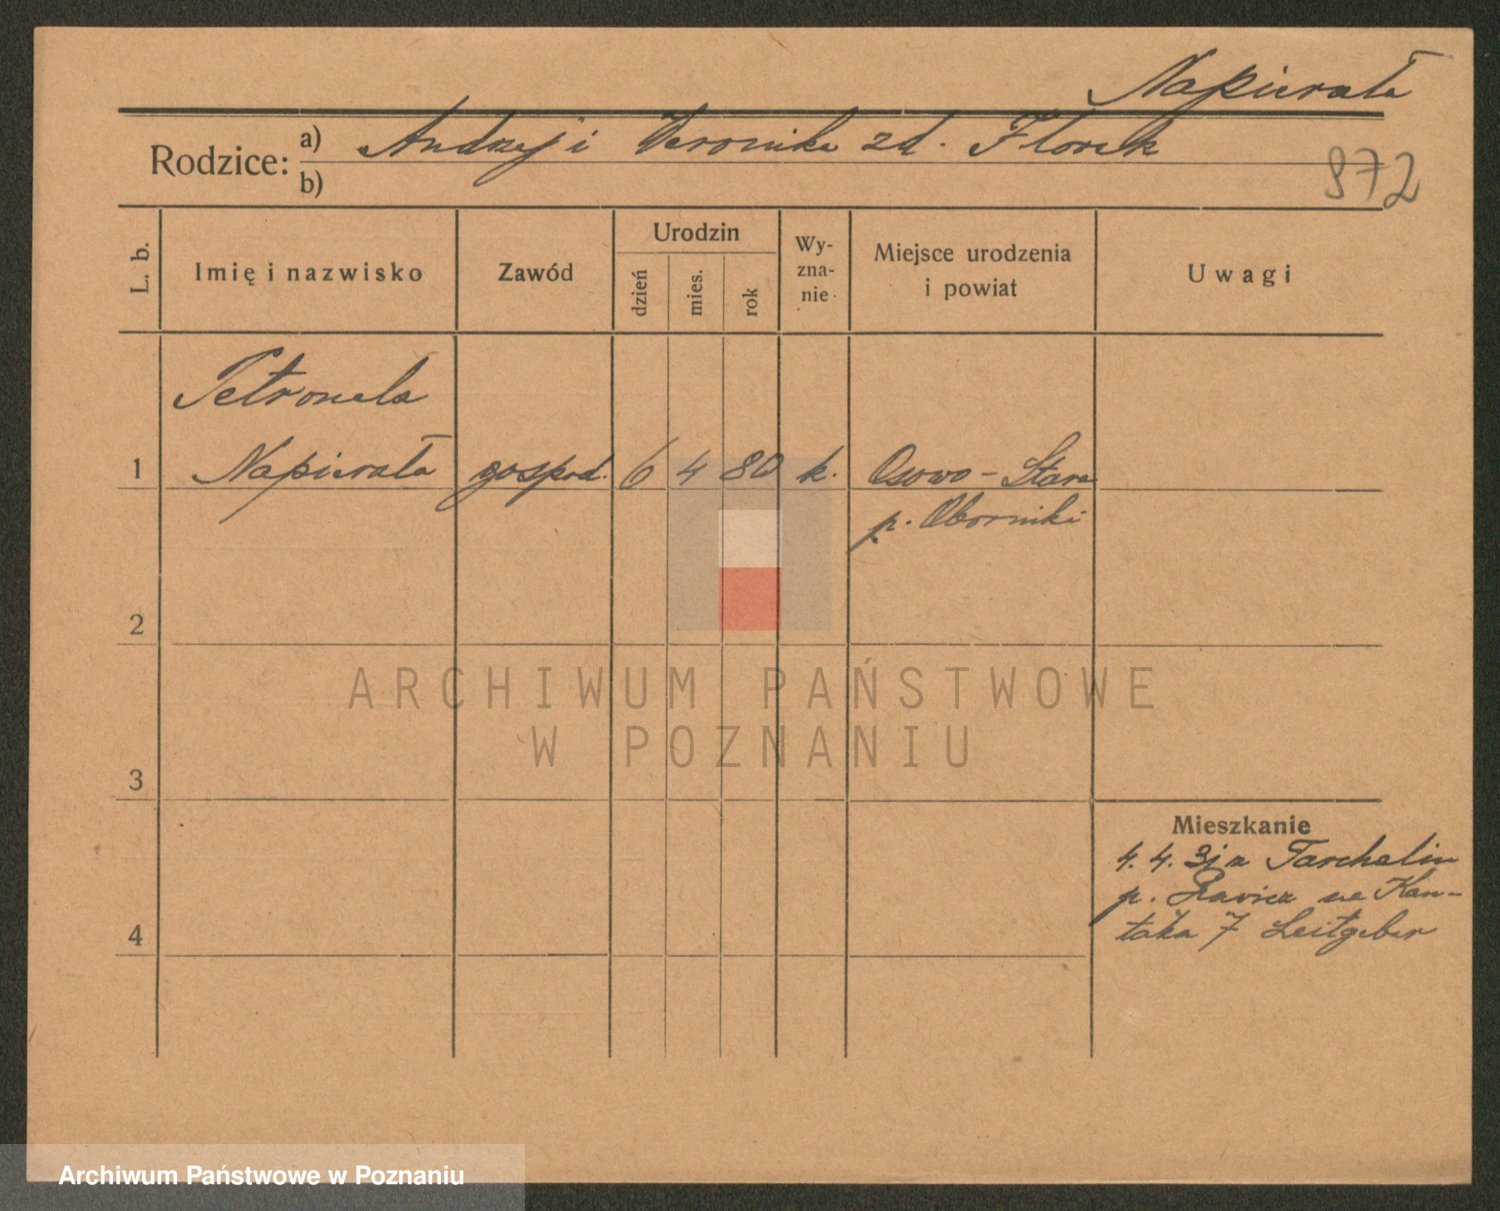 Napierała
Rodzice: a) Andrzej i Weronika zd. Florek
b)
972
L. b.
Imię i nazwisko
Zawód
Urodzin
dzień
mies.
rok
Wy-
zna-
nie
Miejsce urodzenia
i powiat
Uwagi
Petronela
1 Napierała gospod. 6 4 80 k. Osowo-Stare
p. Oborniki
2
ARCHIWUM PAŃSTWOWE
W POZNANIU
3
Mieszkanie
4. 4. 31 z Tarchalin
p. Rawicz na Kan-
taka 7 Leitgeber
4
Archiwum Państwowe w Poznaniu